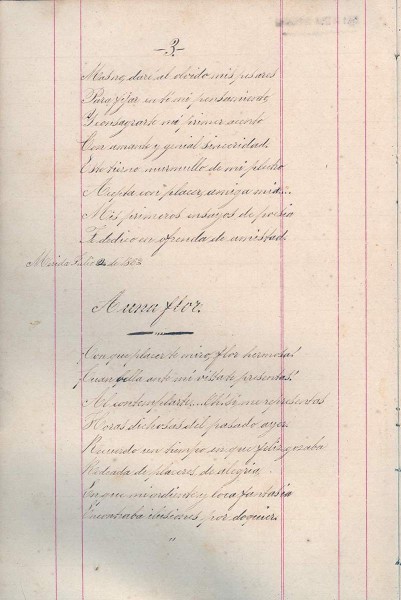 -3-
Mas no, daré al olvido mis pesares
Para fijar en ti mi pensamiento,
Y consagrarte mi primer acento
Con amante y genial sinceridad.
Este tierno murmullo de mi plectro
Acepta con placer, amiga mia...
Mis primeros ensayos de poesia
Te dedico en ofrenda de amistad.
Mérida Julio de 1863
A una flor.
Con que placer te miro, flor hermosa!
Cuan bella ante mi vista te presentas!
Al contemplarte... me representas
Horas dichosas del pasado ayer.
Recuerdo un tiempo en que feliz gozaba
Rodeada de placeres, de alegria,
En que mi ardiente y loca fantasia
Encontraba ilusiones por doquier.
"